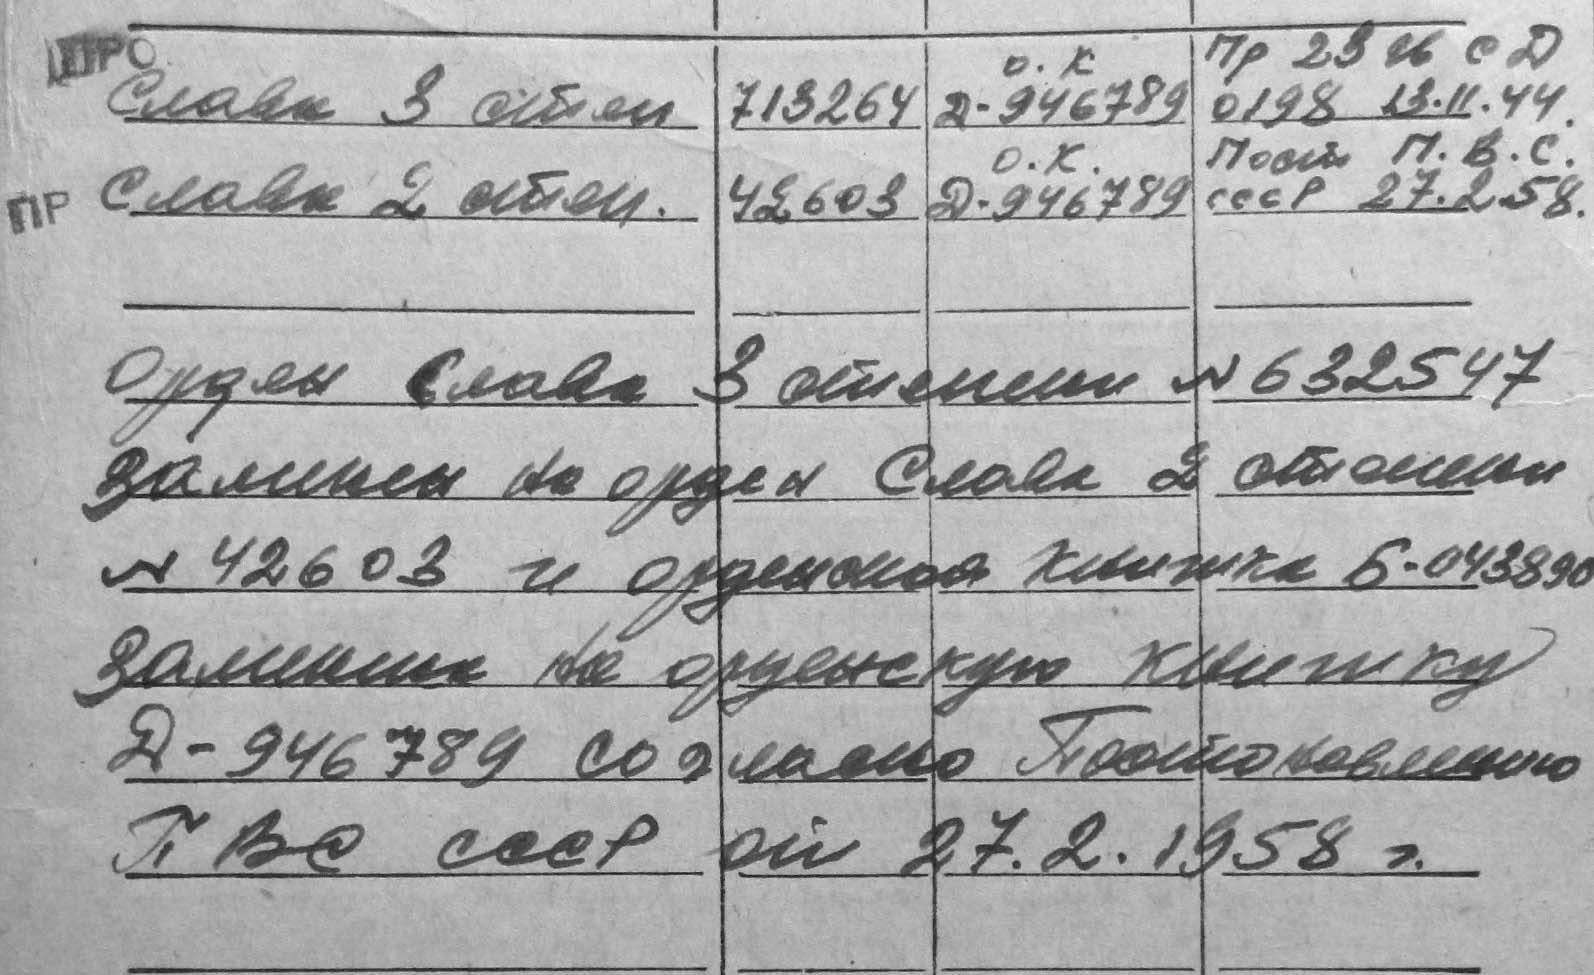 ПРО
Слава 3 степ 713264 о.к Д-946789 Пр 23 сд 0198 13.11.44.
ПР Слава 2 степ. 42603 о.к. Д-946789 Пост П.В.С. СССР 27.2.58.
Орден Слава 3 степени № 632547
Заменен на орден Слава 2 степени
№ 42603 и орденская книжка Б-043890
Заменена на орденскую книжку
Д-946789 согласно Постановлению
ПВС СССР от 27.2.1958 г.